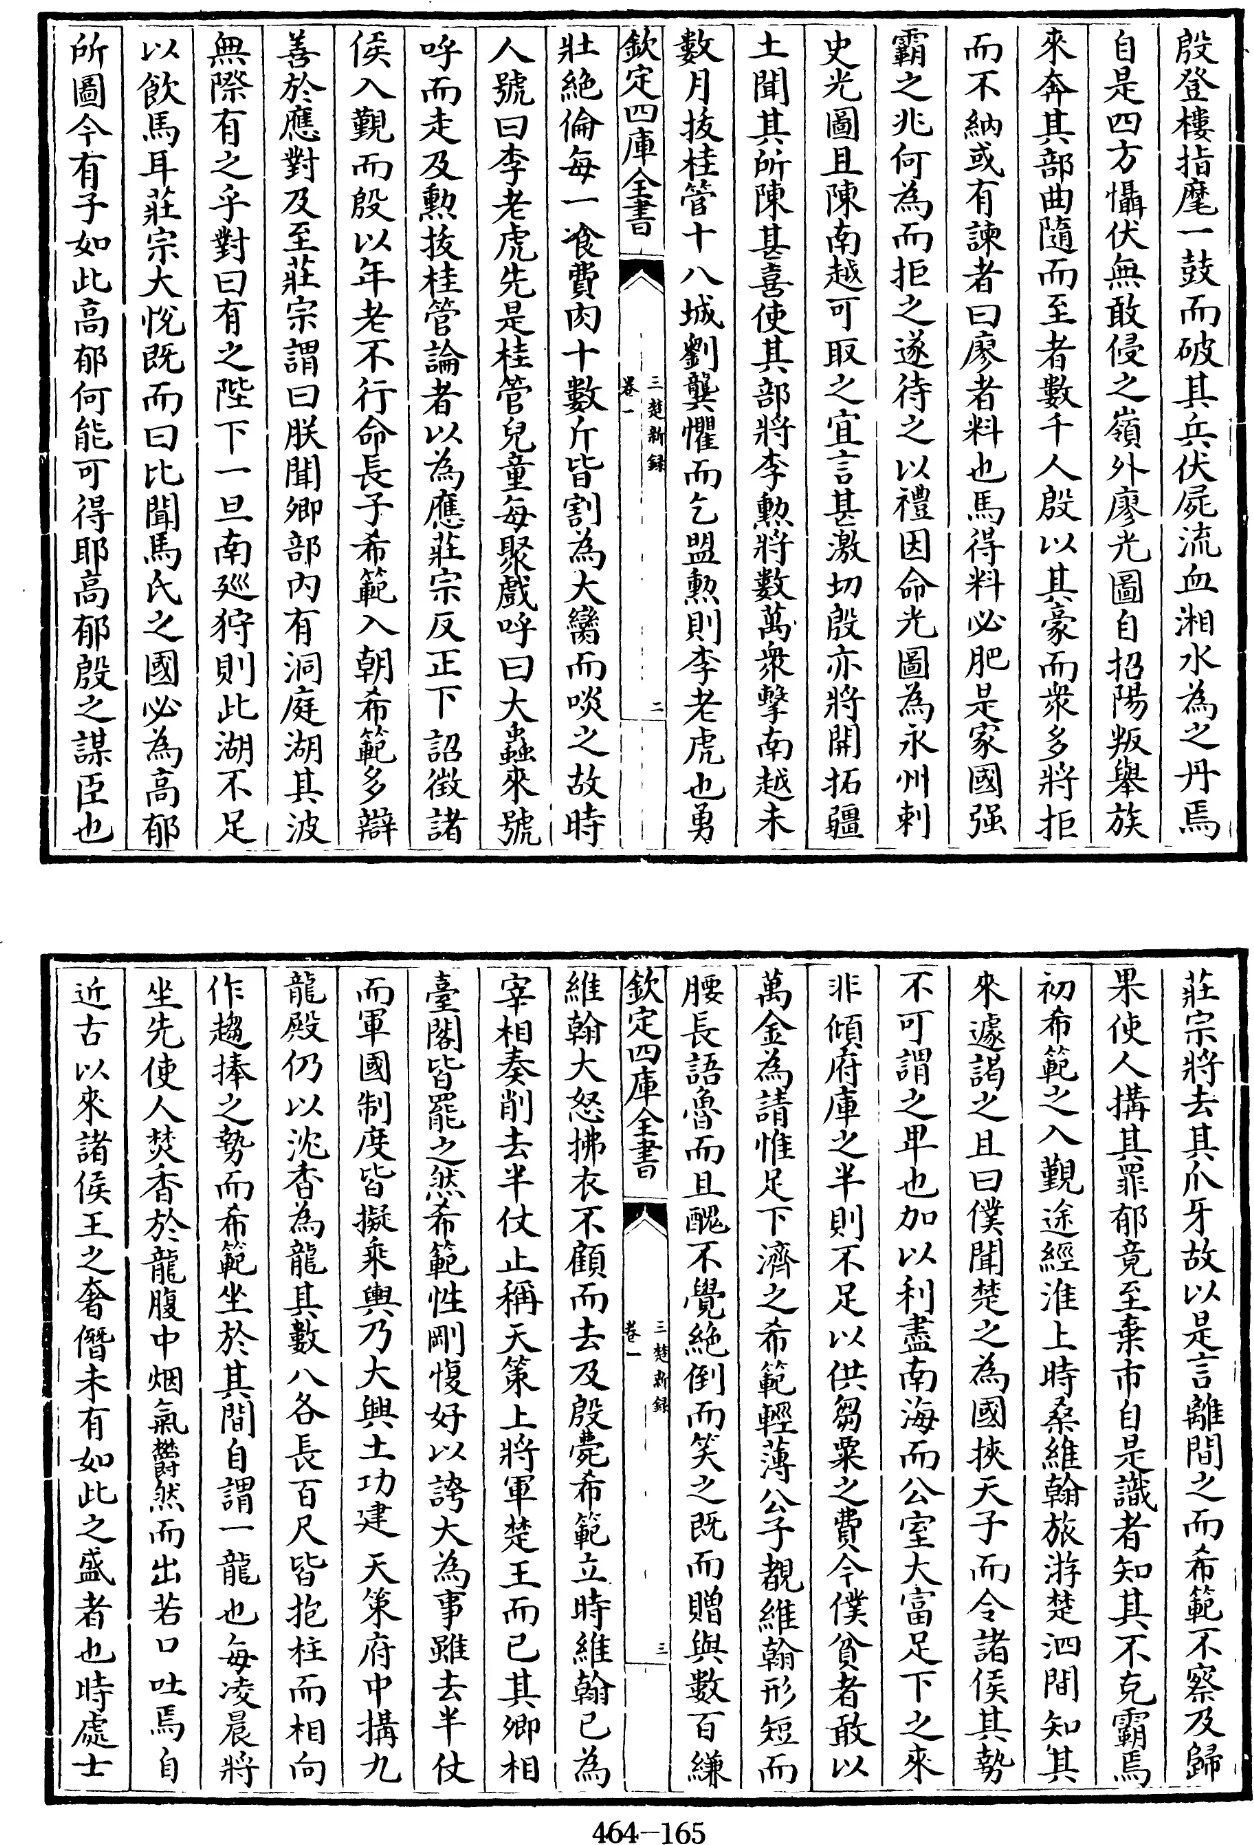 殷登樓指麾一鼓而破其兵伏屍流血湘水為之丹焉
自是四方懾伏無敢侵之嶺外廖光圖自招陽叛舉族
來奔其部曲隨而至者數千人殷以其豪而衆多將拒
而不納或有諫者曰廖者料也馬得料必肥是家國强
霸之兆何為而拒之遂待之以禮因命光圖為永州刺
史光圖且陳南越可取之宜言甚激切殷亦將開拓疆
土聞其所陳甚喜使其部將李勲將數萬衆擊南越未
數月拔桂管十八城劉龑懼而乞盟勲則李老虎也勇
欽定四庫全書
三楚新録
卷一
二
壯絶倫每一飡費肉十數斤皆割為大臠而啖之故時
人號曰李老虎先是桂管兒童每聚戲呼曰大蟲來號
呼而走及勲拔桂管論者以為應莊宗反正下詔徵諸
侯入覲而殷以年老不行命長子希範入朝希範多辯
善於應對及至莊宗謂曰朕聞卿部内有洞庭湖其波
無際有之乎對曰有之陛下一旦南廵狩則此湖不足
以飲馬耳莊宗大悅既而曰比聞馬氏之國必為高郁
所圖今有子如此高郁何能可得耶高郁殷之謀臣也
莊宗將去其爪牙故以是言離間之而希範不察及歸
果使人搆其罪郁竟至棄市自是識者知其不克霸焉
初希範之入覲途經淮上時桑維翰旅游楚泗間知其
來遽謁之且曰僕聞楚之為國挾天子而令諸侯其勢
不可謂之卑也加以利盡南海而公室大富足下之來
非傾府庫之半則不足以供芻粟之費今僕貧者敢以
萬金為請惟足下濟之希範輕薄公子覩維翰形短而
腰長語魯而且醜不覺絶倒而笑之既而贈與數百縑
欽定四庫全書
三楚新録
卷一
三
維翰大怒拂衣不顧而去及殷薨希範立時維翰已為
宰相奏削去半仗止稱天策上將軍楚王而已其卿相
臺閣皆罷之然希範性剛愎好以誇大為事雖去半仗
而軍國制度皆擬乘輿乃大興土功建天策府中搆九
龍殿仍以沈香為龍其數八各長百尺皆抱柱而相向
作趨捧之勢而希範坐於其間自謂一龍也每凌晨將
坐先使人焚香於龍腹中烟氣鬱然而出若口吐焉自
近古以來諸侯王之奢僭未有如此之盛者也時處士
464-165